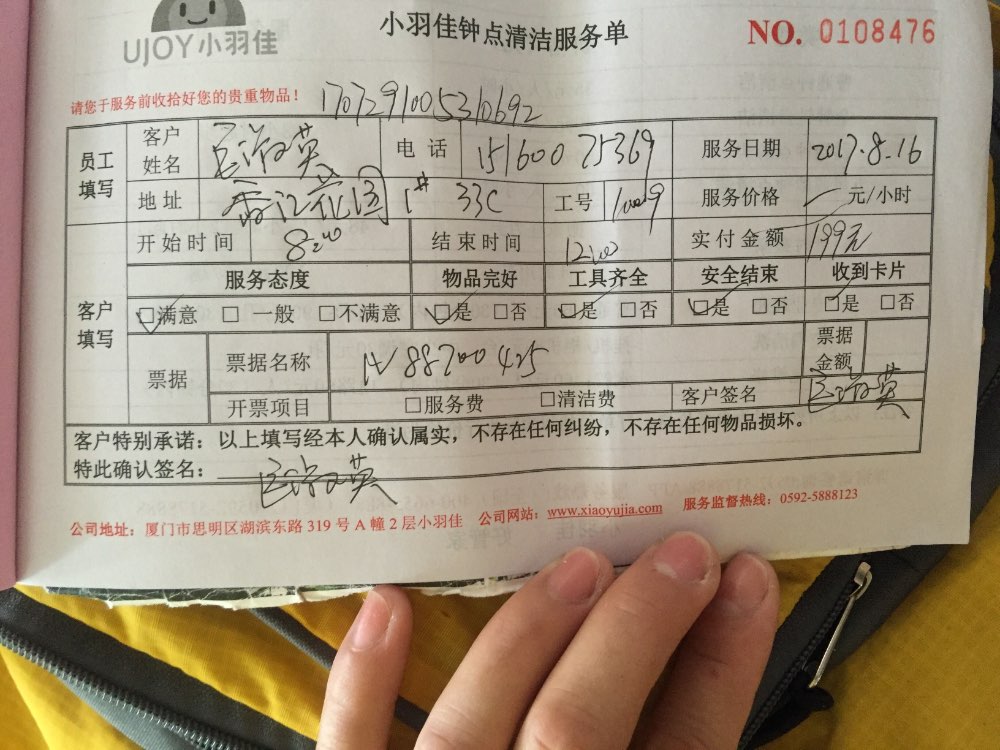 UJOY小羽佳
小羽佳钟点清洁服务单
NO. 0108476
请您于服务前收拾好您的贵重物品！ 1707291005310692
员工填写 客户姓名 电话 15160075369 服务日期 2017.8.16
地址 香江花园 1# 33C 工号 服务价格 元/小时
客户填写 开始时间 8:00 结束时间 12:00 实付金额 199元
服务态度 物品完好 工具齐全 安全结束 收到卡片
□满意 □一般 □不满意 □是 □否 □是 □否 □是 □否 □是 □否
票据 票据名称 N 88700425 票据金额
开票项目 □服务费 □清洁费 客户签名
客户特别承诺：以上填写经本人确认属实，不存在任何纠纷，不存在任何物品损坏。
特此确认签名：
公司地址：厦门市思明区湖滨东路 319 号 A 幢 2 层小羽佳 公司网站：www.xiaoyujia.com 服务监督热线：0592-5888123